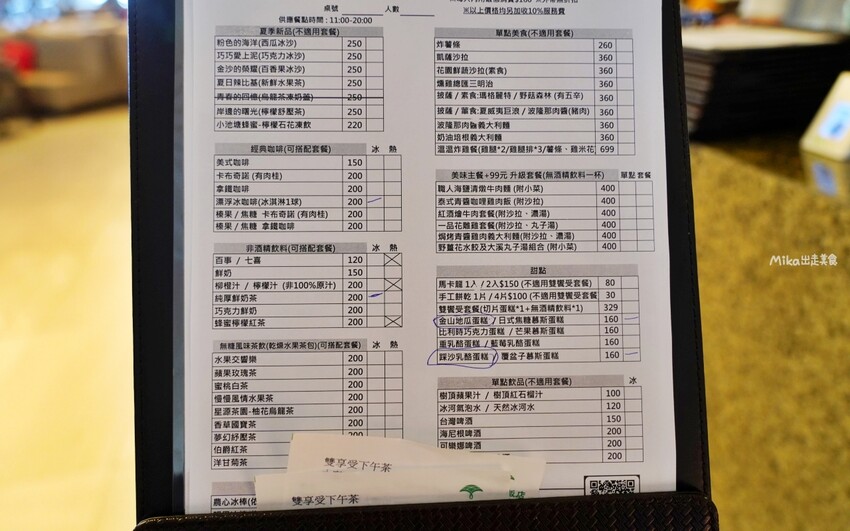 桌號 人數
供應餐點時間：11:00-20:00
※以上價格均另加收10%服務費
夏季新品(不適用套餐)
粉色的海洋(西瓜冰沙) 250
巧巧愛上泥(巧克力冰沙) 250
金沙的榮耀(百香果冰沙) 250
夏日辣比基(新鮮水果茶) 250
青春的回憶(烏龍茶凍奶蓋) 250
岸邊的曙光(檸檬舒壓茶) 250
小池塘蜂蜜-檸檬石花凍飲 220
經典咖啡(可搭配套餐) 冰 熱
美式咖啡 150
卡布奇諾 (有肉桂) 200
拿鐵咖啡 200
漂浮冰咖啡(冰淇淋1球) 200
榛果 / 焦糖 卡布奇諾 (有肉桂) 200
榛果 / 焦糖 拿鐵咖啡 200
非酒精飲料(可搭配套餐) 冰 熱
百事 / 七喜 120
鮮奶 150
柳橙汁 / 檸檬汁 (非100%原汁) 200
純厚鮮奶茶 200
巧克力鮮奶 200
蜂蜜檸檬紅茶 200
無糖風味茶飲(乾燥水果茶包)(可搭配套餐) 冰 熱
水果交響樂 200
蘋果玫瑰茶 200
蜜桃白茶 200
慢慢風情水果茶 200
星源茶園-柚花烏龍茶 200
香草國寶茶 200
夢幻紓壓茶 200
伯爵紅茶 200
洋甘菊茶 200
農心冰棒(依
單點美食(不適用套餐)
炸薯條 260
凱薩沙拉 360
花園鮮蔬沙拉(素食) 360
燻雞總匯三明治 360
披薩 / 素食:瑪格麗特 / 野菇森林 (有五辛) 360
披薩 / 葷食:夏威夷巨浪 / 波隆那肉醬(豬肉) 360
波隆那肉醬義大利麵 360
奶油培根義大利麵 360
溫溫炸雞餐(雞腿*2/雞腿排*3/薯條、雞米花) 699
美味主餐+99元 升級套餐(無酒精飲料一杯) 單點 套餐
職人海鹽清燉牛肉麵 (附小菜) 400
泰式青醬咖哩雞肉飯 (附沙拉) 400
紅酒燴牛肉套餐(附沙拉、濃湯) 400
一品花雕雞套餐(附沙拉、丸子湯) 400
焗烤青醬雞肉義大利麵(附沙拉、濃湯) 400
野薑花水餃及大溪丸子湯組合 (附小菜) 400
甜點
馬卡龍 1入 / 2入$150 (不適用雙饗受套餐) 80
手工餅乾 1片 / 4片$100 (不適用雙饗受套餐) 30
雙饗受套餐(切片蛋糕*1+無酒精飲料*1) 329
金山地瓜蛋糕 / 日式焦糖慕斯蛋糕 160
比利時巧克力蛋糕 / 芒果慕斯蛋糕 160
重乳酪蛋糕 / 藍莓乳酪蛋糕 160
踩沙乳酪蛋糕 / 覆盆子慕斯蛋糕 160
單點飲品(不適用套餐) 冰
樹頂蘋果汁 / 樹頂紅石榴汁 100
冰河氣泡水 / 天然冰河水 120
台灣啤酒 150
海尼根啤酒 200
可樂娜啤酒 200
200
雙享受下午茶
雙享受下午茶
Mika出走美食